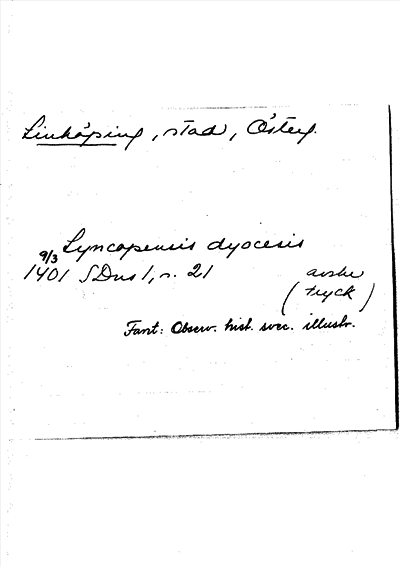 Linköping, stad, Österg.
Lyncopensis dyocesis
9/3
1401 SDns 1, s. 21 avskr
(tryck)
Fant: Observ. hist. svec. illustr.